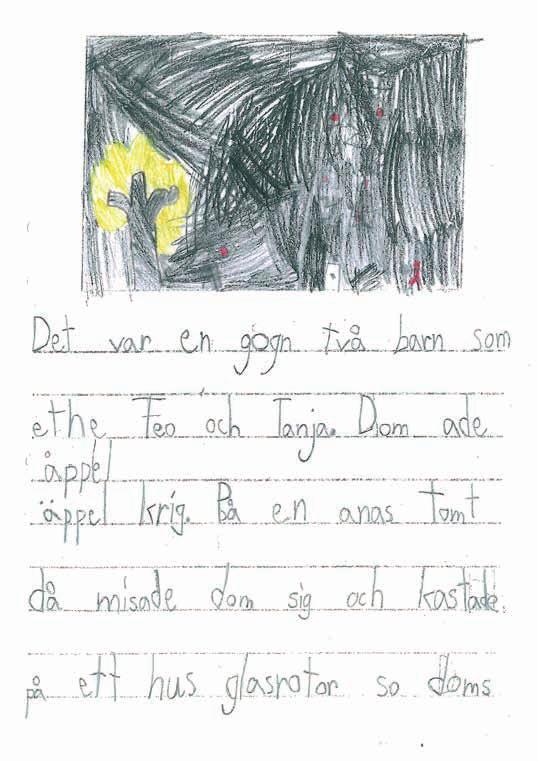 Det var en gogn två barn som
ethe Feo och Tanja. Dom ade
åppel
äppel krig. På en anas tomt
då misade dom sig och kastade.
på ett hus glasrotor so doms